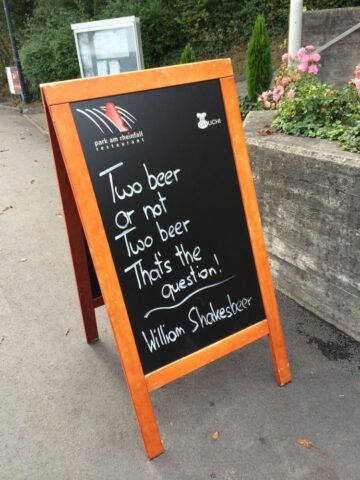 park am rheinfall
restaurant
Two beer
or not
Two beer
That's the
question!
William Shakesbeer